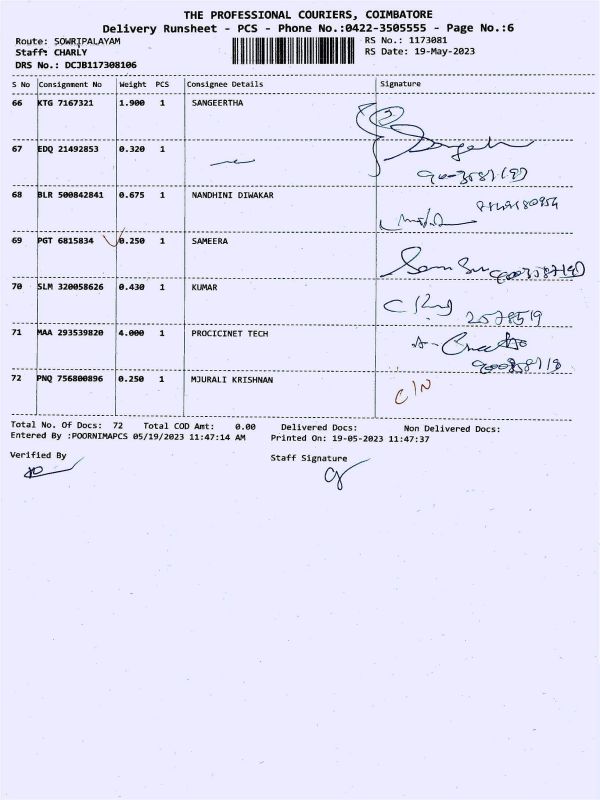 THE PROFESSIONAL COURIERS, COIMBATORE
Delivery Runsheet - PCS - Phone No.:0422-3505555 - Page No.:6
Route: SOWRIPALAYAM RS No.: 1173081
Staff: CHARLY RS Date: 19-May-2023
DRS No.: DCJB117308106
S No Consignment No Weight PCS Consignee Details Signature
66 KTG 7167321 1.900 1 SANGEERTHA
67 EDQ 21492853 0.320 1
68 BLR 500842841 0.675 1 NANDHINI DIWAKAR
69 PGT 6815834 0.250 1 SAMEERA
70 SLM 320058626 0.430 1 KUMAR
71 MAA 293539820 4.000 1 PROCICINET TECH
72 PNQ 756800896 0.250 1 MJURALI KRISHNAN
C/N
Total No. Of Docs: 72 Total COD Amt: 0.00 Delivered Docs: Non Delivered Docs:
Entered By :POORNIMAPCS 05/19/2023 11:47:14 AM Printed On: 19-05-2023 11:47:37
Verified By Staff Signature